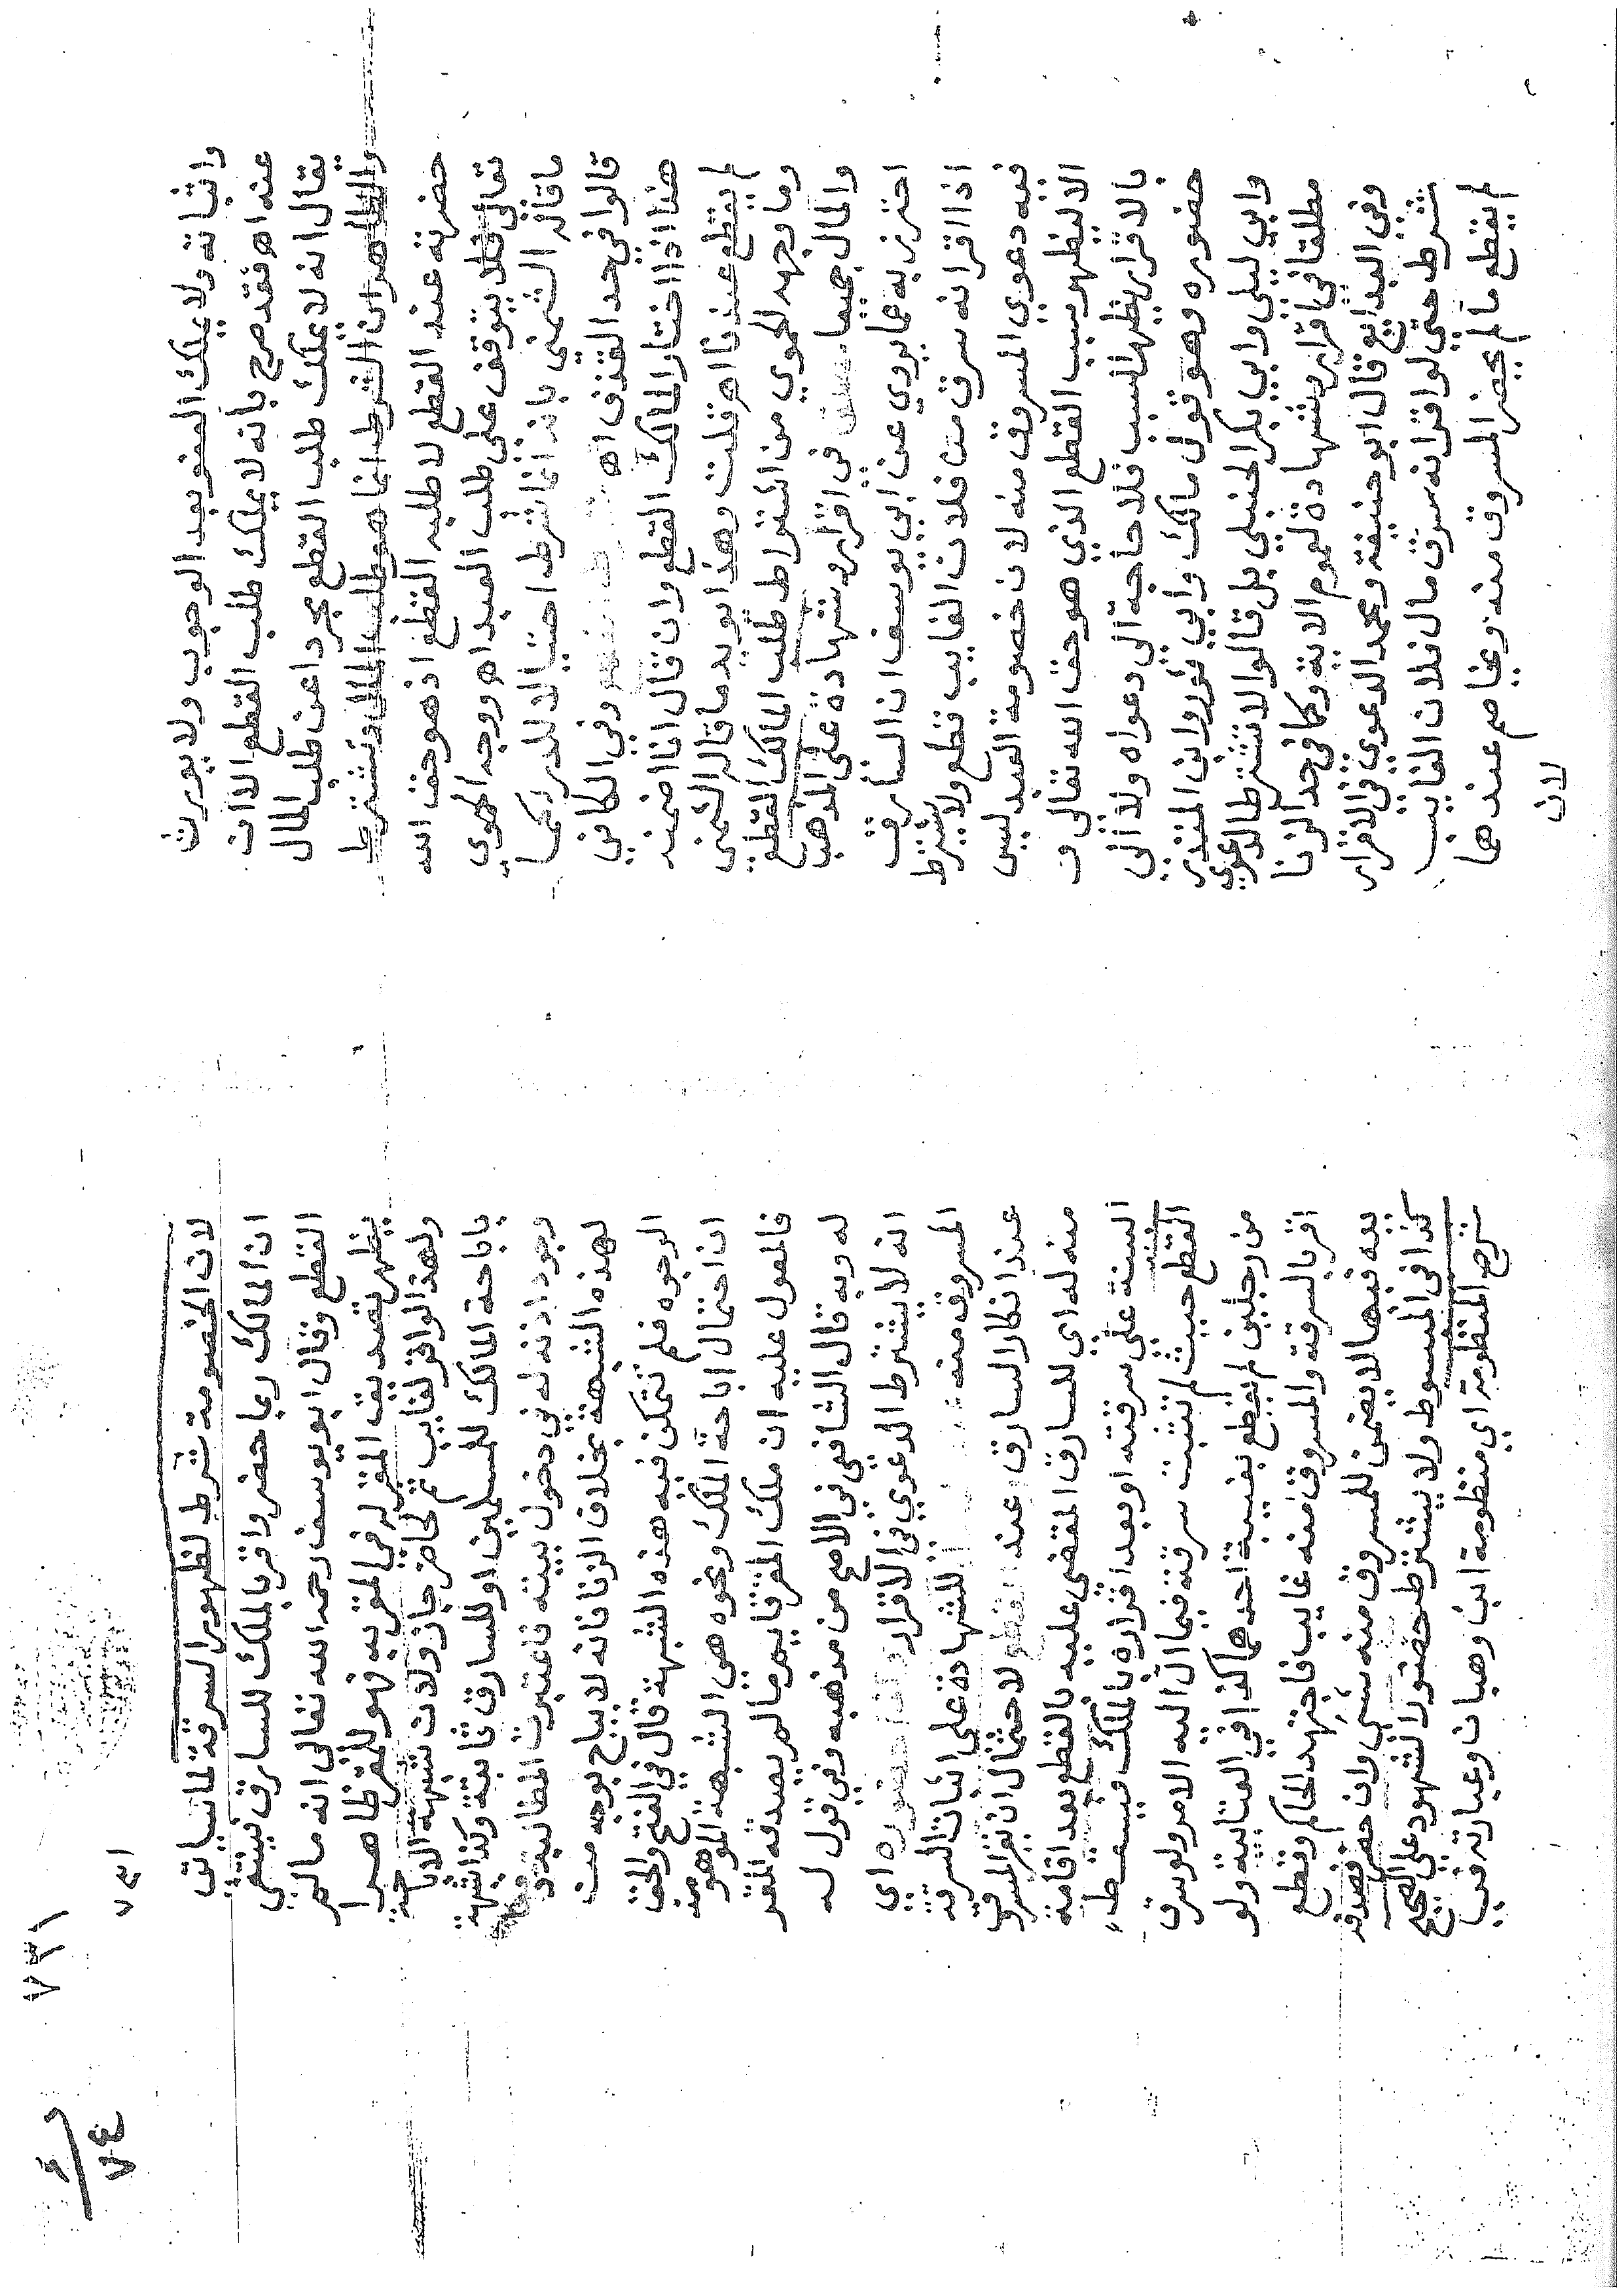 واثباته ولا يملك العفو بعد الوجوب ولا يورث
عنه اه فقد صرح بأنه لا يملك طلب القطع الا ان
يقال انه لا يملك طلب القطع مجردا عن طلب المال
والظاهر ان الشرط انما هو طلب المال وتشترط
حضرته عند القطع لا طلبه القطع اذ هو حق الله
تعالى فلا يتوقف على طلب العبد اه ووجه الحموي
ما قاله الشمني بانه انما شرط احتيالا للدرء كما
قالوا في حد القذف اه وفي الكافي
هذا اذا اختار المالك القطع وان قال انا اضمنه
لم يقطع عندنا اه قلت وهذا يويد ما قاله الشمني
وما وجهه الحموي من اشتراط طلب المالك القطع
والمال جميعا في اقرار وشهادة على المذهب
احترز به عما يروي عن ابي يوسف ان السارق
اذا اقر انه سرق من فلان الغايب قطع ولا يشترط
فيه دعوي المسروق منه لان خصومة العبد ليس
الا ليظهر سبب القطع الذي هو حق الله تعالى و
بالاقرار يظهر السبب فلا حاجة الى دعواه ولا الى
حضوره وهو قول مالك وابي ثور وابن المنذر
وابي ليلى وابي بكر الحنبلي بل قالوا لا تشترط الدعوي
مطلقا في اقرار وشهادة لعموم الاية وكما في حد الزنا
وفي البدايع قال ابو حنيفة ومحمد الدعوي في الاقرار
شرط حتي لو اقر انه سرق مال فلان الغايب
لم يقطع ما لم يحضر المسروق منه ويخاصم عندهما
لان
٧٣١
٧٣١
لان الخصومة شرط لظهور السرقة لما سياتي
ان المالك ربما حضر واقر بالملك للسارق فينتفي
القطع وقال ابو يوسف رحمه الله تعالى انه مالم
يظهر تصديق المقر له في المقر به فهو للمقر ظاهرا
ولهذا لو اقر لغايب ثم لحاضر جاز ولان شبهة الاباحة
باباحة المالك للمسلمين او للسارق ثابتة وكذا شبهة
وجود اذنه له في دخول بيته فاعتبرت المطالبة دفعا
لهذه الشبهة بخلاف الزنا فانه لا يباح بوجه من
الوجوه فلم تتمكن فيه هذه الشبهة قال في الفتح والحق
ان احتمال اباحة الملك ونحوه هي الشبهة الموهومة
فالمعول عليه ان ملك المقر قايم مالم يصدقه المقر
له وبه قال الشافعي في الاصح من مذهبه وفي قول له
انه لا يشترط الدعوي في الاقرار حضوره اي
المسروق منه للشهادة على اثبات السرقة
عند انكار السارق عند القطع لاحتمال ان يقر المسروق
منه له اي للسارق المقضي عليه بالقطع بعد اقامة
البينة على سرقته او بعد اقراره بالملك فيسقط
القطع حيث لم تثبت سرقته فيما آل اليه الامر ولو سرق
من رجلين لم يقطع بغيبة احدهما كذا في العتابية ولو
اقر بالسرقة والمسروق منه غايب فاجتهد الحاكم وقطع
يده فيها لا يضمن للمسروق منه شي وان حضر فصدقه
كذا في المبسوط ولا يشترط حضور الشهود على الصحيح
شرح المنظومة اي منظومة ابن وهبان وعبارته في